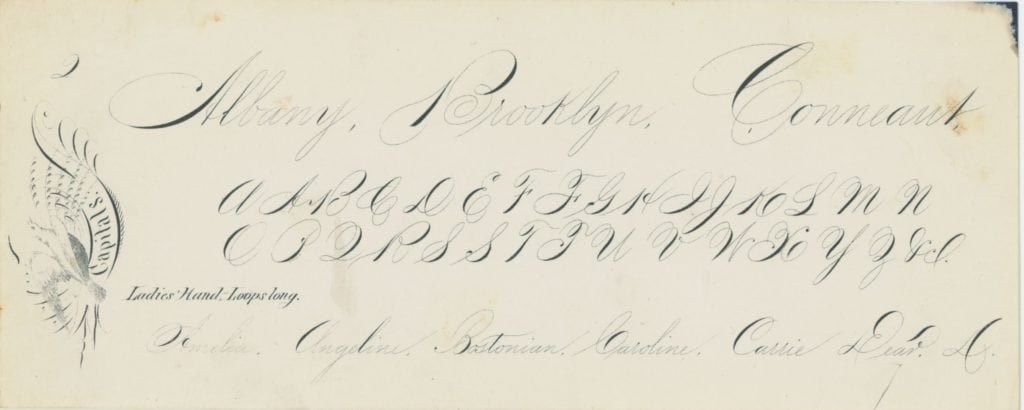 2
Albany. Brooklyn. Conneaut.
Capitals.
A A B C D E F F G H I J K L M N
O P Q R S S T T U V W X Y Z &c.
Ladies' Hand.-Loops long.
Amelia. Angeline. Bostonian. Caroline. Carrie Dear. D.